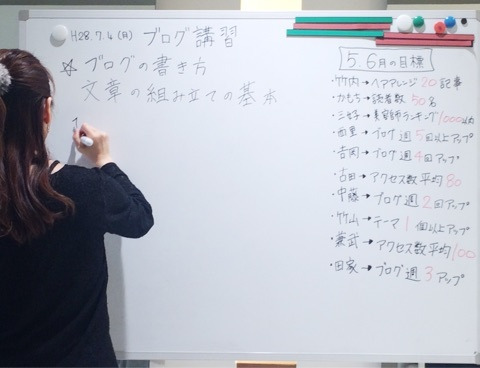 H28.7.4(月) ブログ講習
☆ブログの書き方
文章の組み立ての基本
1
5.6月の目標
・竹内→ヘアアレンジ20記事
・かもち→読者数50名
・三好→美容師ランキング1000以内
・西里→ブログ週5回以上アップ
・吉岡→ブログ週4回アップ
・古田→アクセス数平均80
・中藤→ブログ週2回アップ
・竹山→テーマ1個以上アップ
・兼武→アクセス数平均100
・田家→ブログ週3アップ